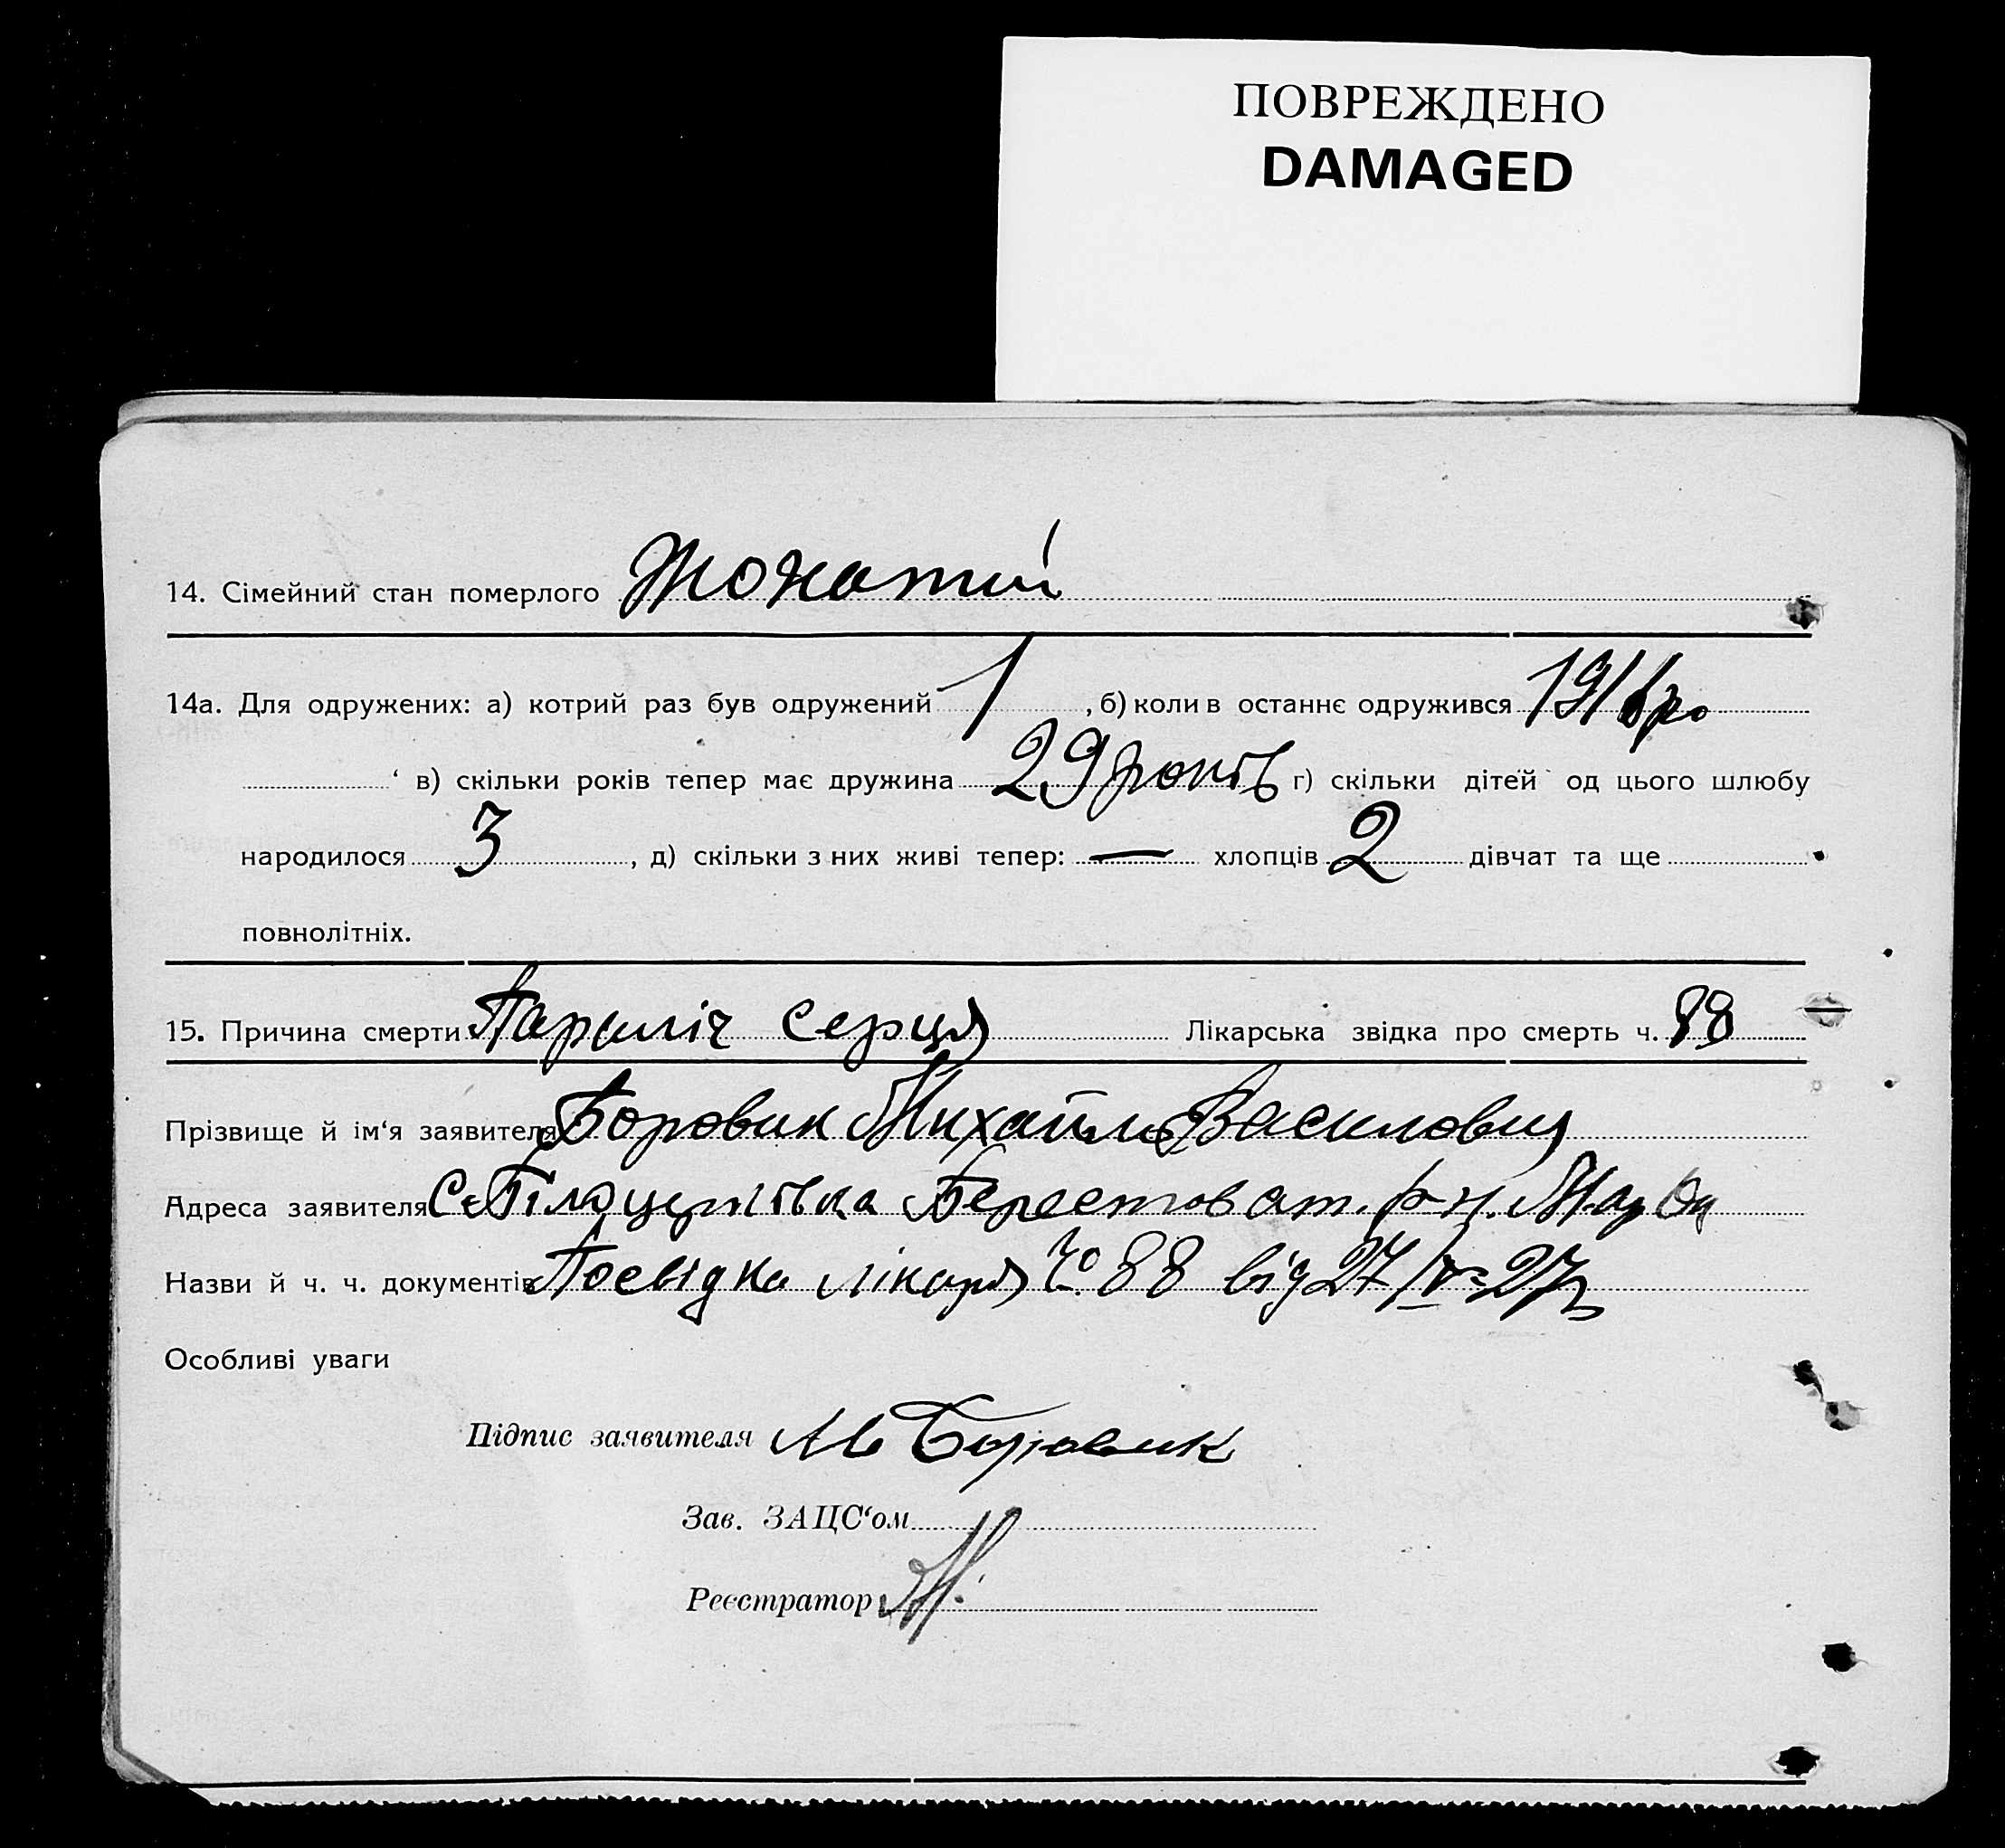 ПОВРЕЖДЕНО
DAMAGED
14. Сімейний стан померлого Жонатий
14а. Для одружених: а) котрий раз був одружений 1, б) коли в останнє одружився 1916 ро
в) скільки років тепер має дружина 29 років г) скільки дітей од цього шлюбу
народилося 3, д) скільки з них живі тепер: — хлопців 2 дівчат та ще
повнолітніх.
15. Причина смерти Параліч серця Лікарська звідка про смерть ч. 88
Прізвище й ім‘я заявителя Боровик Михайло Василович
Адреса заявителя С. Білоцерківка Берестоват. р-н. Мар
Назви й ч. ч. документів Посвідка лікаря № 88 від 27/IV-27р
Особливі уваги
Підпис заявителя М Боровик
Зав. ЗАЦС‘ом
Реєстратор